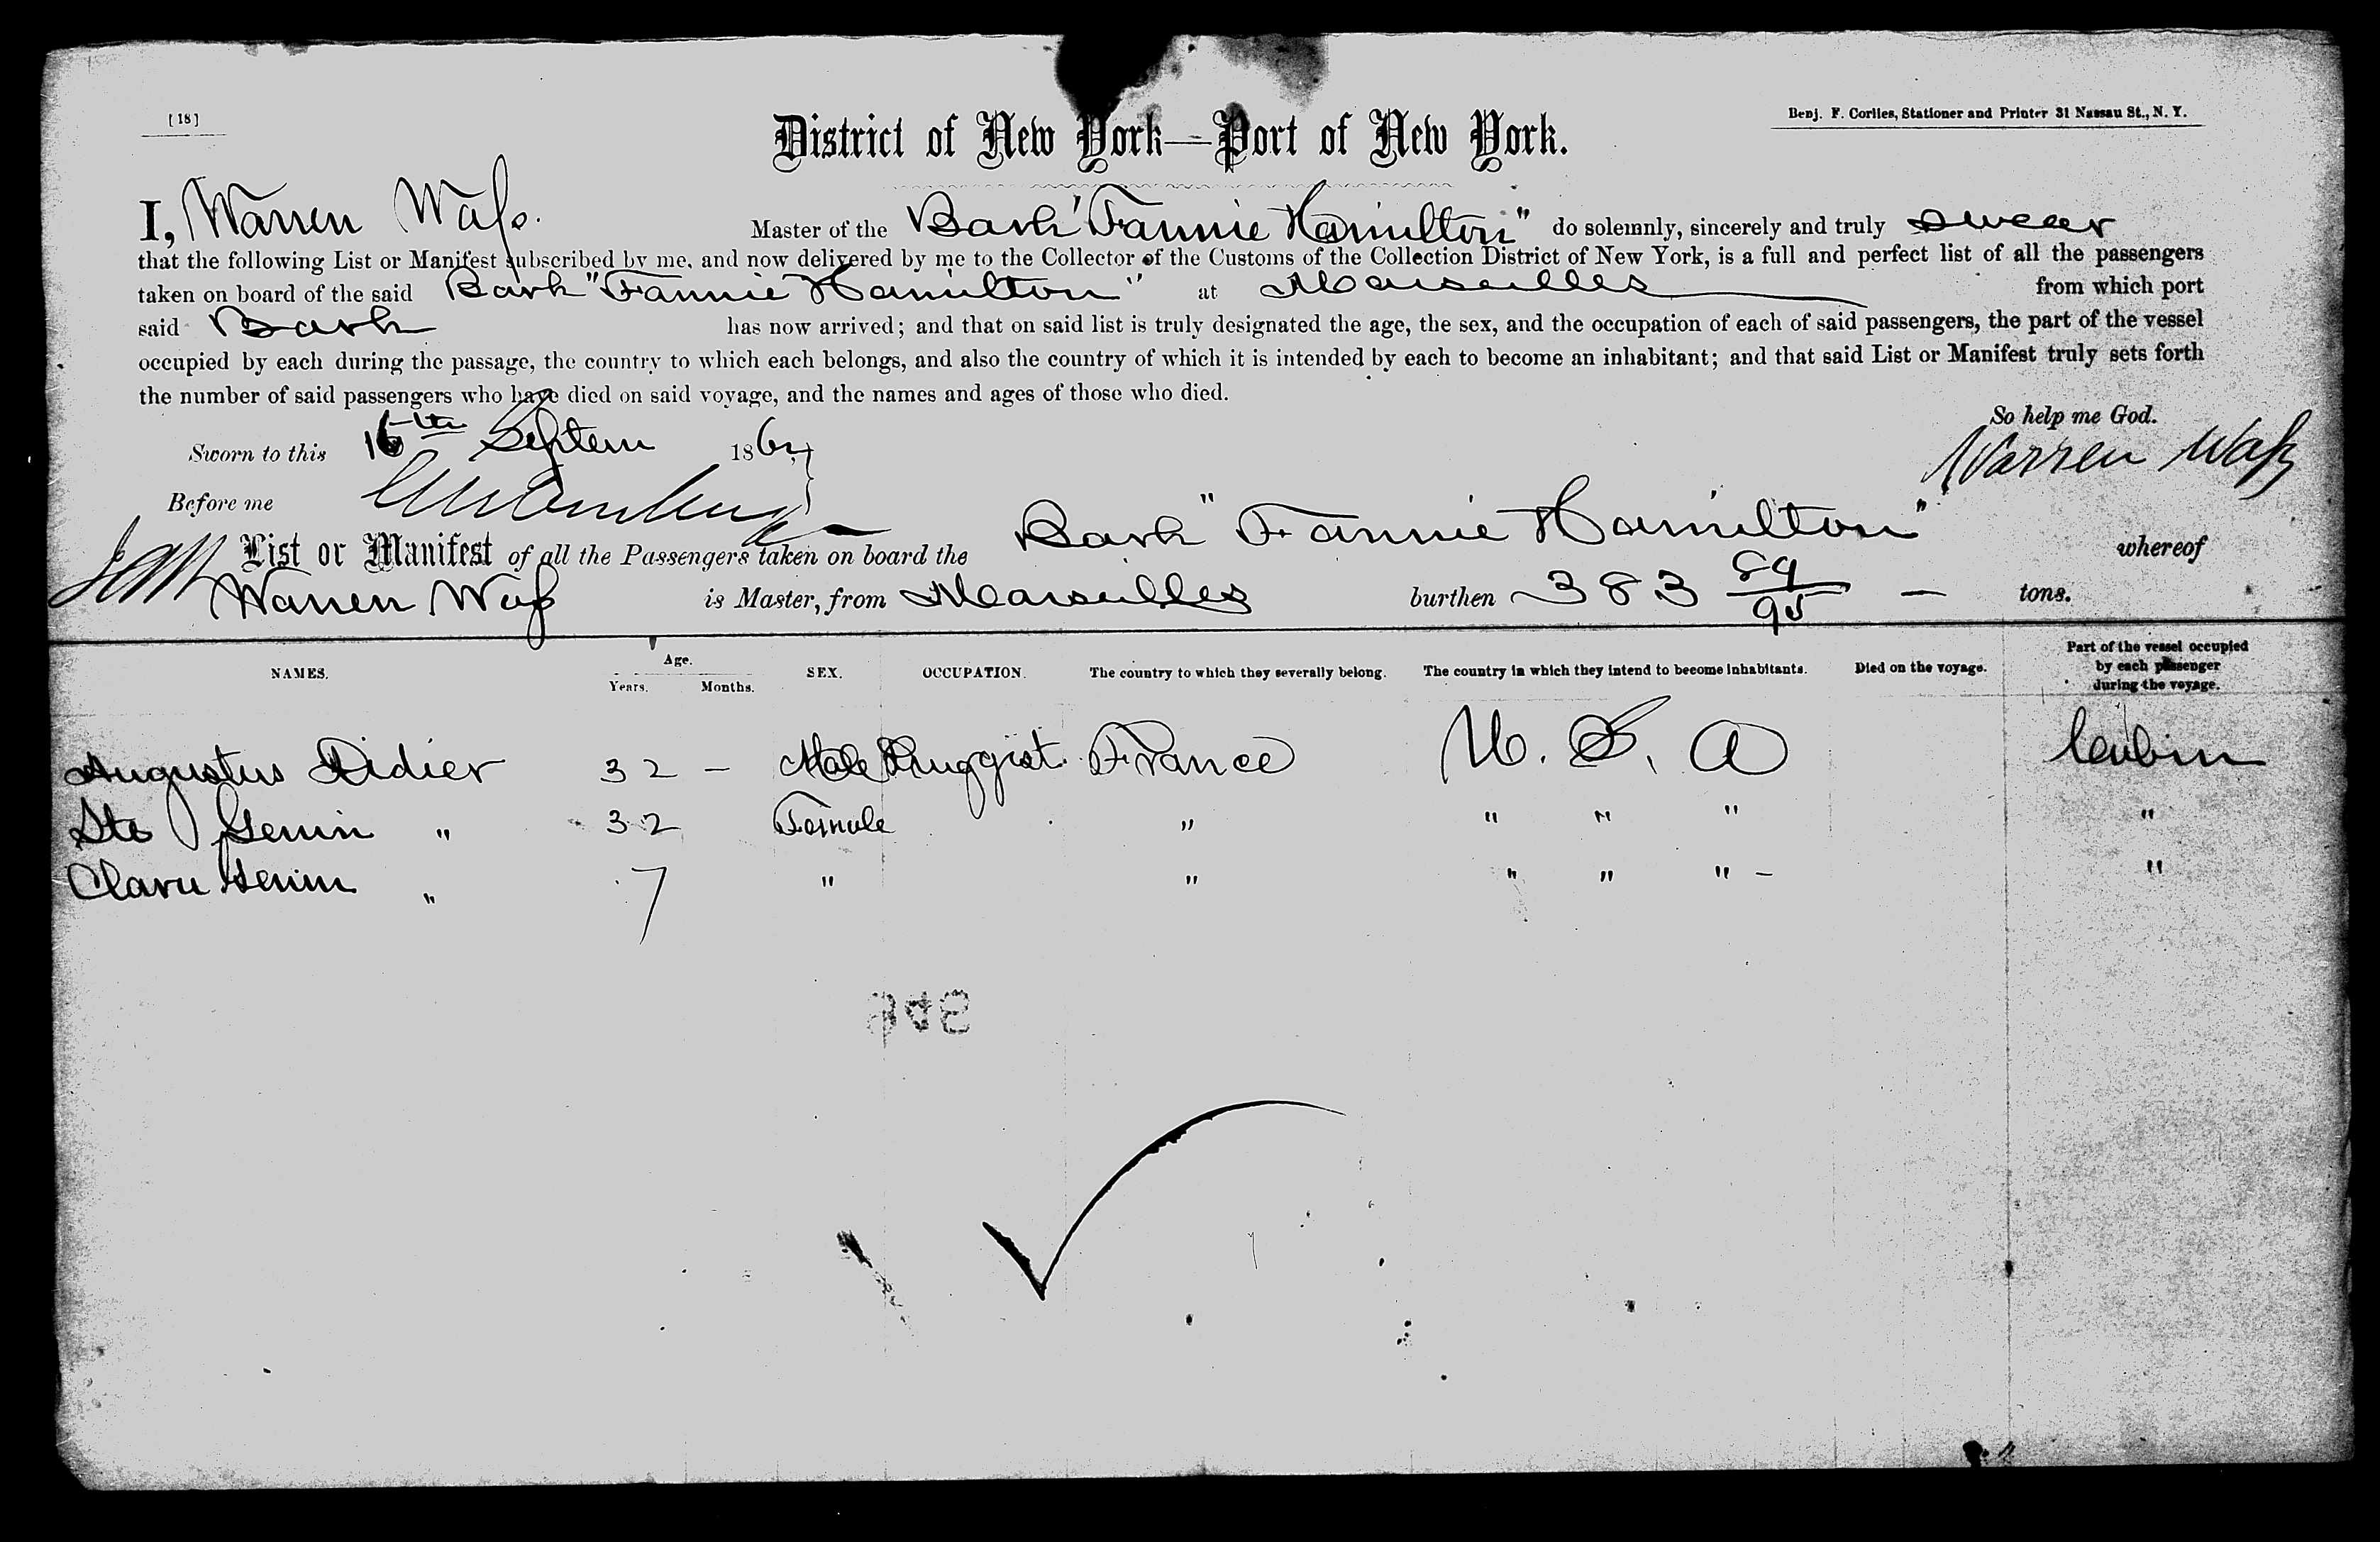 [18]
Benj. F. Corlies, Stationer and Printer 31 Nassau St., N. Y.
District of New York—Port of New York.
I, Warren Wass. Master of the Bark "Fannie Hamilton" do solemnly, sincerely and truly swear
that the following List or Manifest subscribed by me, and now delivered by me to the Collector of the Customs of the Collection District of New York, is a full and perfect list of all the passengers
taken on board of the said Bark "Fannie Hamilton" at Marseilles from which port
said Bark has now arrived; and that on said list is truly designated the age, the sex, and the occupation of each of said passengers, the part of the vessel
occupied by each during the passage, the country to which each belongs, and also the country of which it is intended by each to become an inhabitant; and that said List or Manifest truly sets forth
the number of said passengers who have died on said voyage, and the names and ages of those who died.
So help me God.
Sworn to this 16th Septem 186
Warren Wass
Before me
List or Manifest of all the Passengers taken on board the Bark "Fannie Hamilton" whereof
Warren Wass is Master, from Marseilles burthen 383 89/95 — tons.
NAMES. Age. Years. Months. SEX. OCCUPATION. The country to which they severally belong. The country in which they intend to become inhabitants. Died on the voyage. Part of the vessel occupied by each passenger during the voyage.
Augustus Didier 32 – Male Druggist France U. S. A Cabin
Ste Genin " 32 Female " " " " "
Clara Genin " 7 " " " " " – "